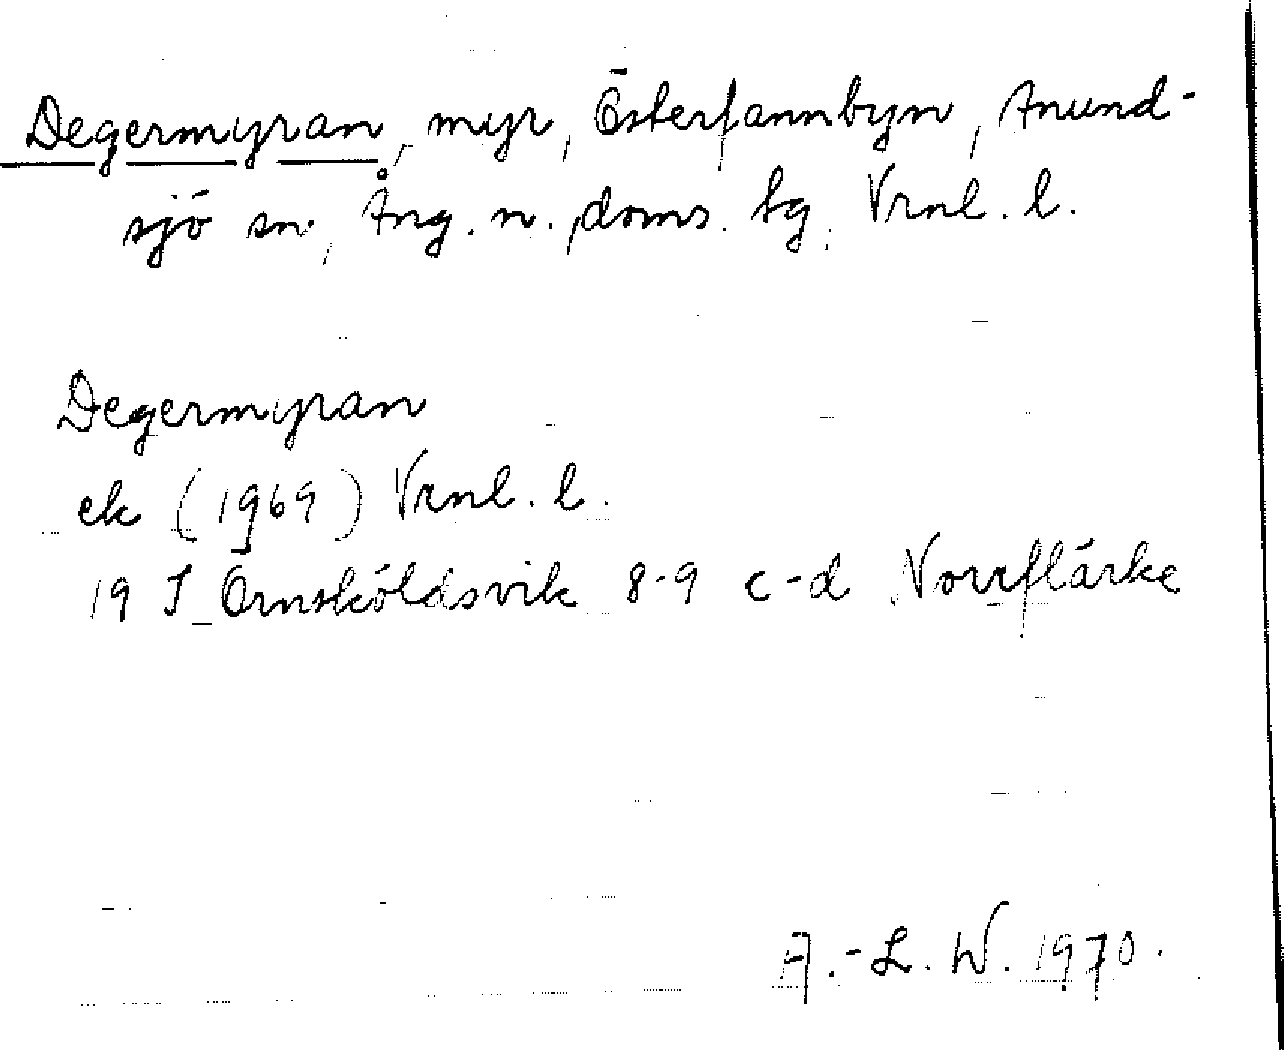 Degermyran, myr, Österfannbyn, Anund-
sjö sn, Ång. n. doms. tg. Vrnl. l.
Degermyran
ek (1969) Vrnl. l.
19 J Örnsköldsvik 8-9 c-d Norrflärke
A.-L. W. 1970.